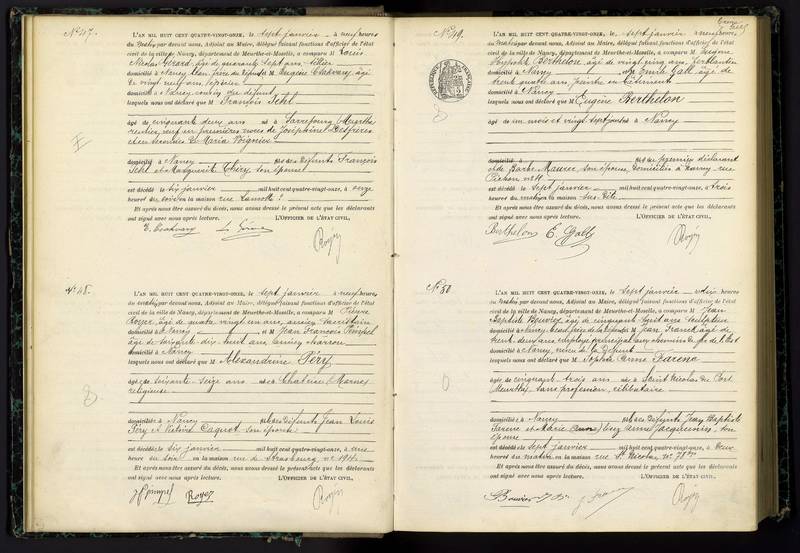 N° 47.
L'AN MIL HUIT CENT QUATRE-VINGT-ONZE, le sept janvier à neuf heures
du matin par devant nous, Adjoint au Maire, délégué faisant fonctions d'officier de l'état
civil de la ville de Nancy, département de Meurthe-et-Moselle, a comparu M Louis
Nicolas Gérard, âgé de quarante sept ans, tôlier
domicilié à Nancy
domicilié à Nancy, cousin du défunt
lesquels nous ont déclaré que M François Sehl
âgé de cinquante deux ans né à Sarrebourg, Meurthe
rentier, veuf en premières noces de Joséphine Desfrères
et en secondes de Maria Voignier
domicilié à Nancy fils des défunts François
Sehl et Marguerite Théry, son épouse
est décédé le six janvier mil huit cent quatre-vingt-onze, à onze
heures du soir en la maison rue
Et après nous être assuré du décès, nous avons dressé le présent acte que les déclarants
ont signé avec nous après lecture. L'OFFICIER DE L'ÉTAT CIVIL,
N° 48.
L'AN MIL HUIT CENT QUATRE-VINGT-ONZE, le sept janvier à neuf heures
du matin par devant nous, Adjoint au Maire, délégué faisant fonctions d'officier de l'état
civil de la ville de Nancy, département de Meurthe-et-Moselle, a comparu M Pierre
Royer, âgé de quatre vingt un ans, ancien sacristain
domicilié à Nancy et M Jean François Pimpel
âgé de soixante dix huit ans, ancien charron
domicilié à Nancy
lesquels nous ont déclaré que M Alexandrine Féry
âgée de soixante seize ans née à Chatenu Marnes
religieuse
domiciliée à Nancy fille des défunts Jean Louis
Féry et Victoire Caquot son épouse
est décédée le six janvier mil huit cent quatre-vingt-onze, à une
heure du soir en la maison rue de Strasbourg, n° 194
Et après nous être assuré du décès, nous avons dressé le présent acte que les déclarants
ont signé avec nous après lecture. L'OFFICIER DE L'ÉTAT CIVIL,
Pimpel Royer
N° 49.
L'AN MIL HUIT CENT QUATRE-VINGT-ONZE, le sept janvier à neuf heures
du matin par devant nous, Adjoint au Maire, délégué faisant fonctions d'officier de l'état
civil de la ville de Nancy, département de Meurthe-et-Moselle, a comparu M Eugène
Hippolyte Berthelon, âgé de vingt cinq ans, ferblantier
domicilié à Nancy et M Emile Gall âgé de
trente quatre ans, peintre en bâtiments
domicilié à Nancy
lesquels nous ont déclaré que M Eugène Berthelon
âgé de un mois et vingt sept jours né à Nancy
domicilié à fils du premier déclarant
et de Barbe Maurer, son épouse, domiciliés à Nancy, rue
Pichon n° 4
est décédé le sept janvier mil huit cent quatre-vingt-onze, à trois
heures du matin en la maison sus-dite
Et après nous être assuré du décès, nous avons dressé le présent acte que les déclarants
ont signé avec nous après lecture. L'OFFICIER DE L'ÉTAT CIVIL,
Berthelon E. Gall
N° 50.
L'AN MIL HUIT CENT QUATRE-VINGT-ONZE, le sept janvier à dix heures
du matin par devant nous, Adjoint au Maire, délégué faisant fonctions d'officier de l'état
civil de la ville de Nancy, département de Meurthe-et-Moselle, a comparu M Jean
Baptiste Bouvier, âgé de cinquante huit ans, sculpteur
domicilié à Nancy, beau frère de la défunte et M Jean Franck âgé de
trente deux ans, employé principal aux chemins de fer de l'Est
domicilié à Nancy, neveu de la défunte
lesquels nous ont déclaré que M Sophie Anne Farene
âgée de cinquante trois ans née à Saint Nicolas du Port
Meurthe, sans profession, célibataire
domiciliée à Nancy fille des défunts Jean Baptiste
Farene et Marie Anne Jacquemin, son
épouse
est décédée le sept janvier mil huit cent quatre-vingt-onze, à deux
heures du matin en la maison rue St Nicolas, n° 78 bis
Et après nous être assuré du décès, nous avons dressé le présent acte que les déclarants
ont signé avec nous après lecture. L'OFFICIER DE L'ÉTAT CIVIL,
Bouvier